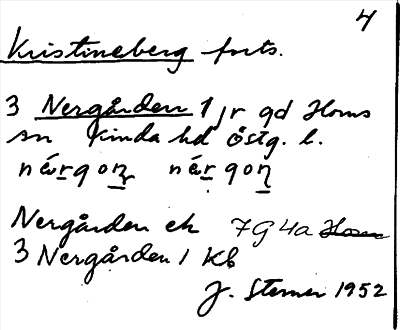 4
Kristineberg forts.
3 Nergården 1 jr gd Horns
sn Kinda hd Östg. l.
Nergården ek 7G4a Horn
3 Nergården 1 Kb
J. Sterner 1952